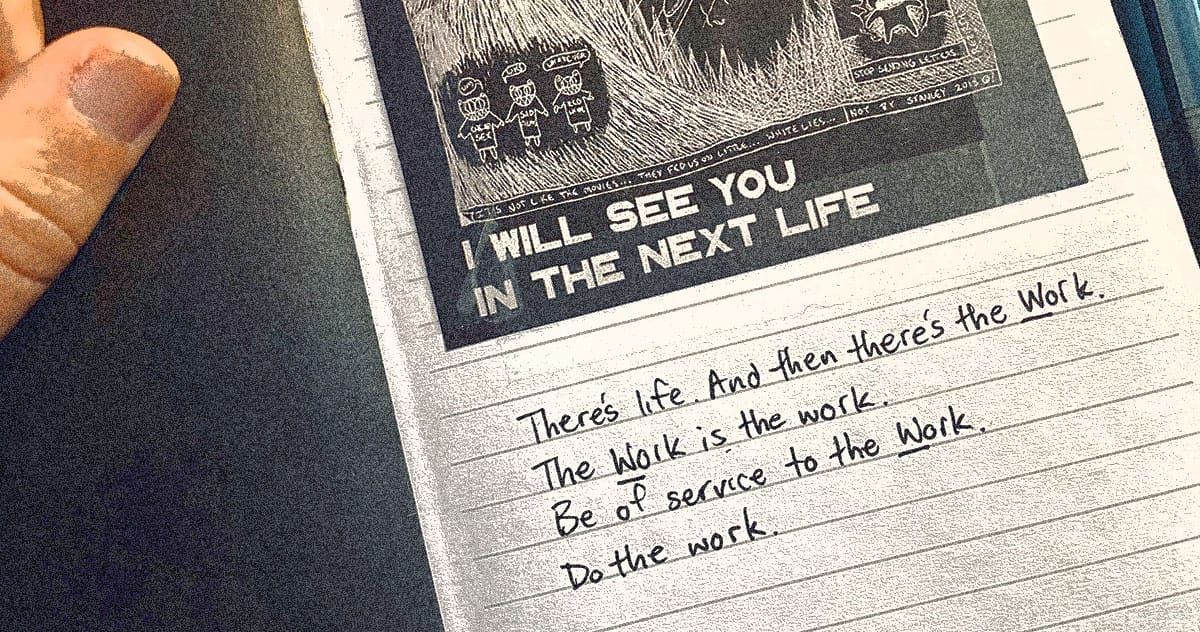 STOP SENDING LETTERS
IT'S NOT LIKE THE MOVIES... THEY FED US ON LITTLE... WHITE LIES... NOT BY STANLEY 2013
I WILL SEE YOU
IN THE NEXT LIFE
There's life. And then there's the Work.
The Work is the work.
Be of service to the Work.
Do the work.